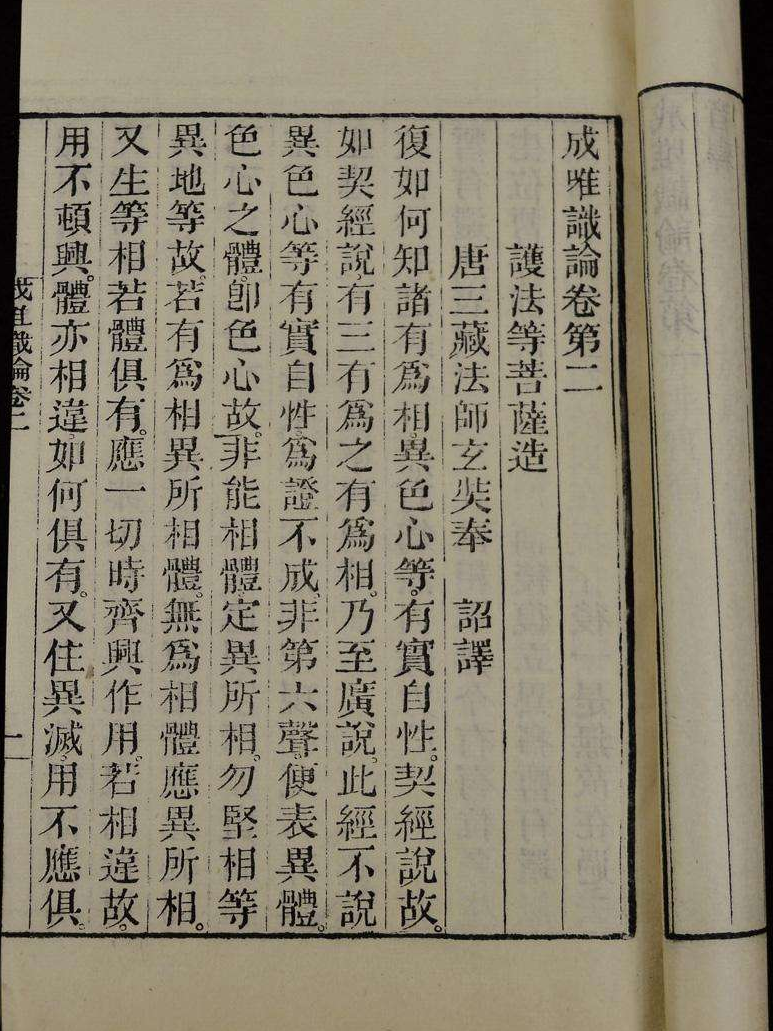 成唯識論卷第二
護法等菩薩造
唐三藏法師玄奘奉 詔譯
復如何知諸有爲相。異色心等。有實自性。契經說故。
如契經說。有三有爲之有爲相。乃至廣說。此經不說
異色心等有實自性。爲證不成。非第六聲。便表異體。
色心之體。卽色心故。非能相體。定異所相。勿堅相等
異地等故。若有爲相異所相體。無爲相體應異所相。
又生等相若體俱有。應一切時齊興作用。若相違故。
用不頓興。體亦相違。如何俱有。又住異滅。用不應俱。
成唯識論卷二
一